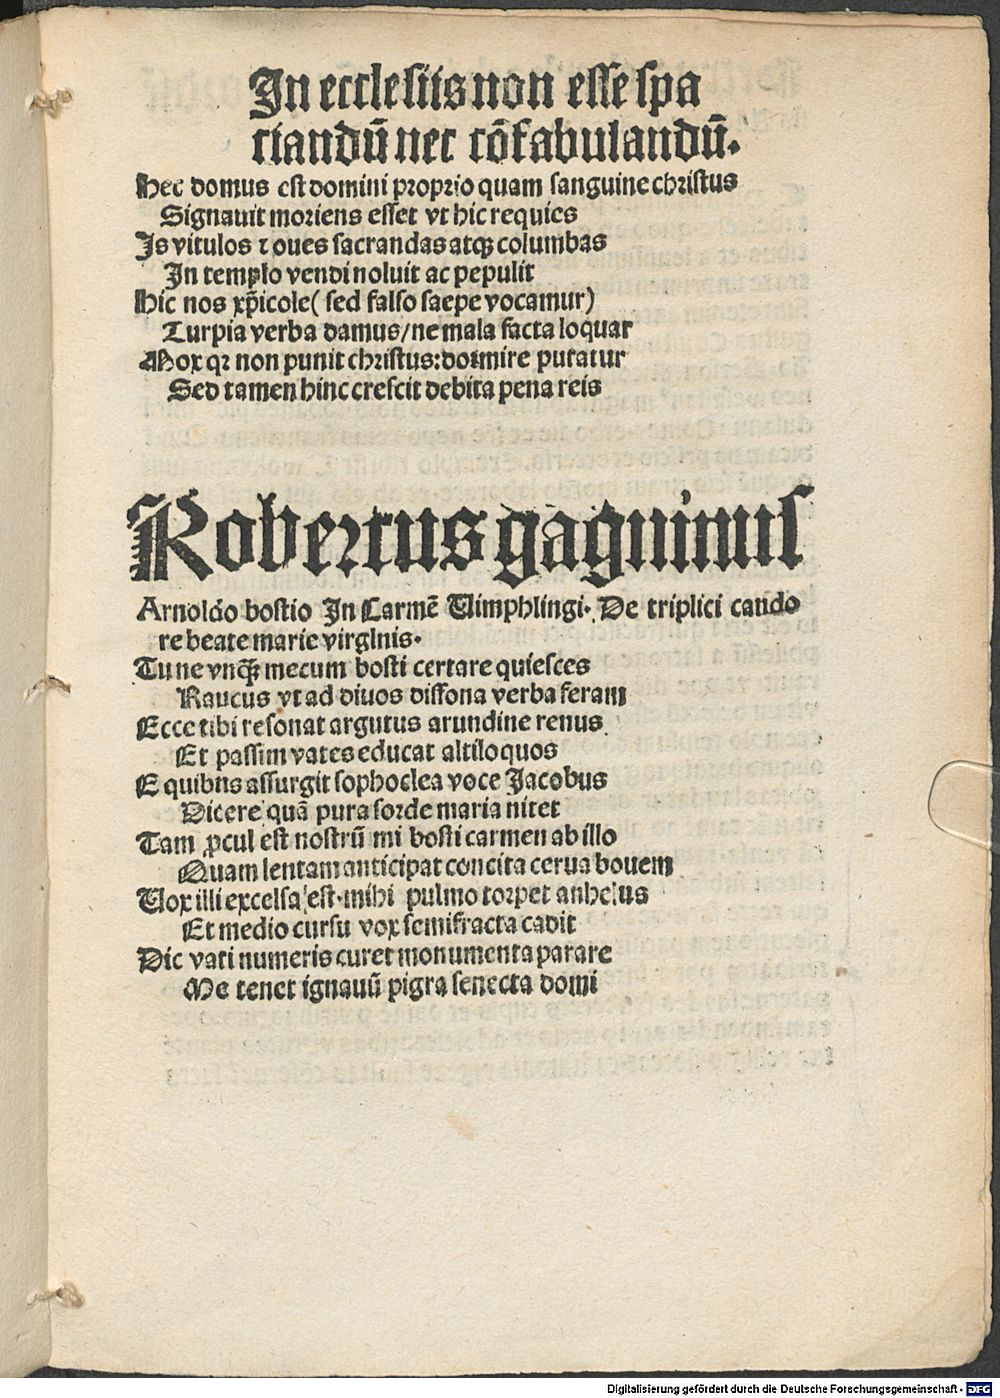 In ecclesiis non esse spa
ciandū nec cōfabulandū.
Hec domus est domini proprio quam sanguine christus
Signauit moriens esset vt hic requies
Is vitulos ⁊ oues sacrandas atqꝫ columbas
In templo vendi noluit ac pepulit
Hic nos xp̄icole (sed falso saepe vocamur)
Turpia verba damus/ne mala facta loquar
Mox qꝛ non punit christus: dormire putatur
Sed tamen hinc crescit debita pena reis
Robertus gaguinus
Arnoldo bostio In Carmē Uimphlingi. De triplici cando
re beate marie virginis.
Tu ne vnqꝫ mecum bosti certare quiesces
Raucus vt ad diuos dissona verba feram
Ecce tibi resonat argutus arundine renus
Et passim vates educat altiloquos
E quibns assurgit sophoclea voce Jacobus
Dicere quā pura sorde maria nitet
Tam ꝓcul est nostrū mi bosti carmen ab illo
Quam lentam anticipat concita cerua bouem
Uox illi excelsa est. mihi pulmo torpet anhelus
Et medio cursu vox semifracta cadit
Dic vati numeris curet monumenta parare
Me tenet ignauū pigra senecta domi
Digitalisierung gefördert durch die Deutsche Forschungsgemeinschaft - DFG